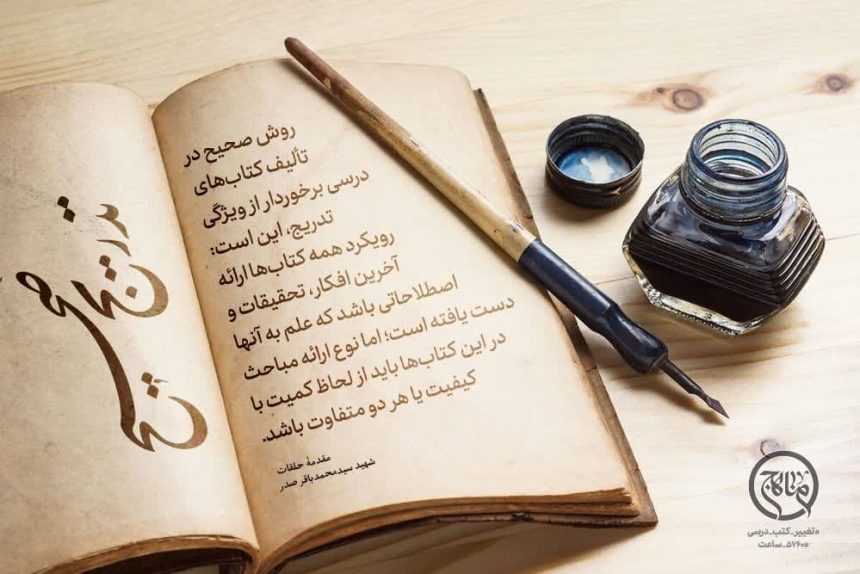 تدریج
صحیح
روش صحیح در
تألیف کتاب‌های
درسی برخوردار از ویژگی
تدریج، این است:
رویکرد همه کتاب‌ها ارائه
آخرین افکار، تحقیقات و
اصطلاحاتی باشد که علم به آنها
دست یافته است؛ اما نوع ارائه مباحث
در این کتاب‌ها باید از لحاظ کمیت با
کیفیت یا هر دو متفاوت باشد.
مقدمهٔ حلقات
شهید سیدمحمدباقر صدر
#تغییر_کتب_درسی
#۵۷۶۰_ساعت